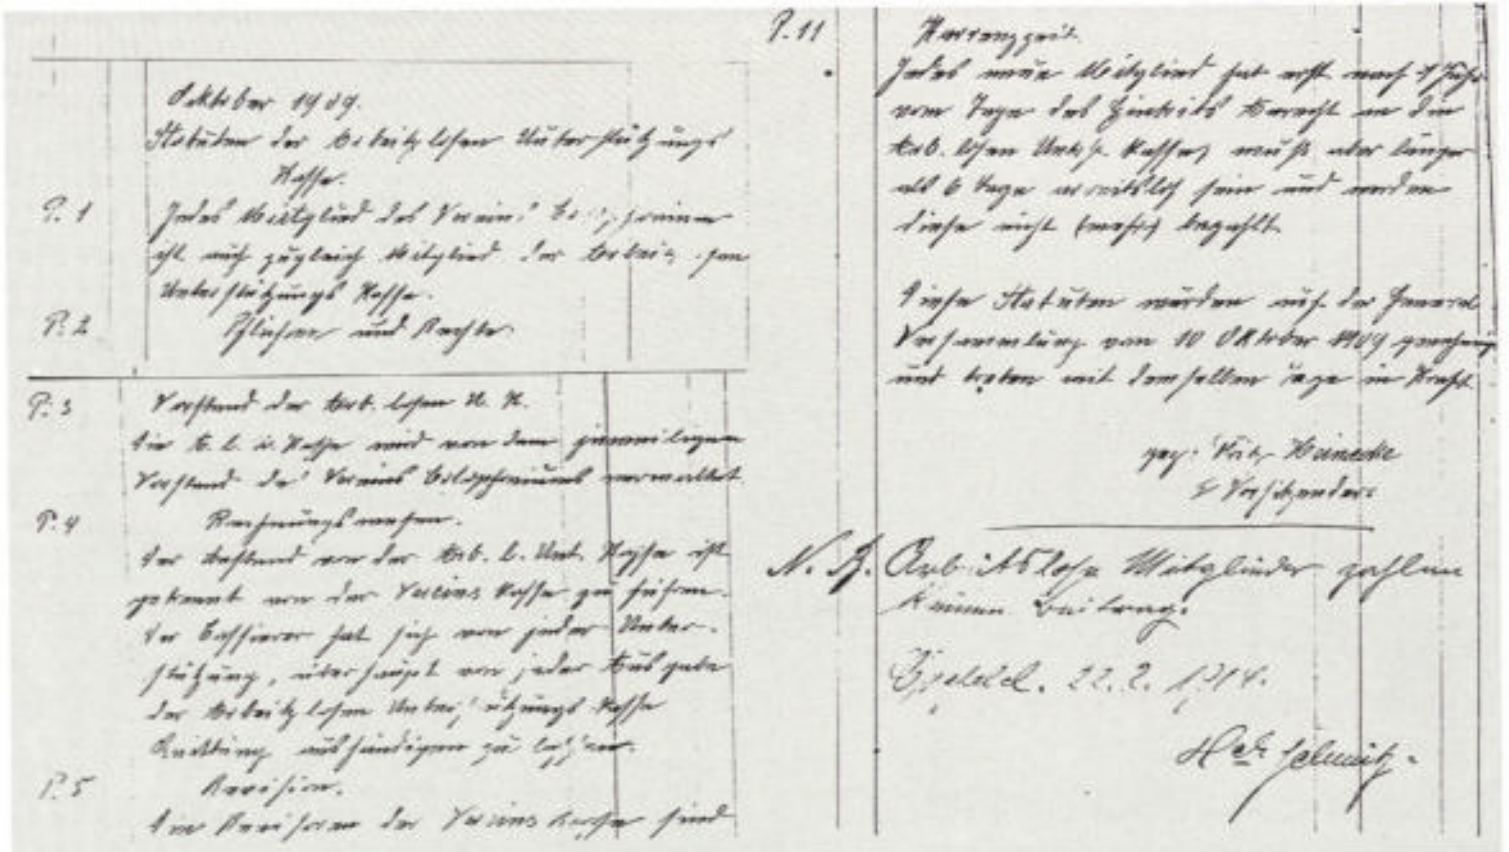 Oktober 1909.
Statuten der Arbeitslosen Unterstützungs
Kasse.
P. 1 Jedes Mitglied des Vereins
ist auch zugleich Mitglied der
Unterstützungs Kasse.
P. 2 Pflichten und Rechte.
P. 3 Vorstand der Arb. losen U. K.
Die A. l. U. Kasse wird von dem jeweiligen
Vorstand des Vereins verwaltet.
P. 4 Rechnungswesen.
Der Bestand von der Arb. l. Unt. Kasse ist
getrennt von der Vereins Kasse zu führen.
Der Cassierer hat sich von jeder Unter-
stützung, überhaupt von jeder Ausgabe
der Arbeitslosen Unterstützungs Kasse
Quittung aushändigen zu lassen.
P. 5 Revision.
Die Revisoren der Vereins Kasse sind
P. 11 Karrenzzeit.
Jedes neue Mitglied hat erst nach 1 Jahr
vom Tage des Eintritts Anrecht an die
Arb. losen Unts. Kasse, muß aber länger
als 6 Tage arbeitslos sein und werden
diese nicht (mehr) bezahlt.
Diese Statuten wurden auf der General
Versammlung vom 10 Oktober 1909
und treten mit demselben Tage in Kraft.
gez: Fritz Heinecke
Vorsitzender:
N. B. Arbeitslose Mitglieder zahlen
keinen Beitrag.
22. 2. 1914.
Schmitz.